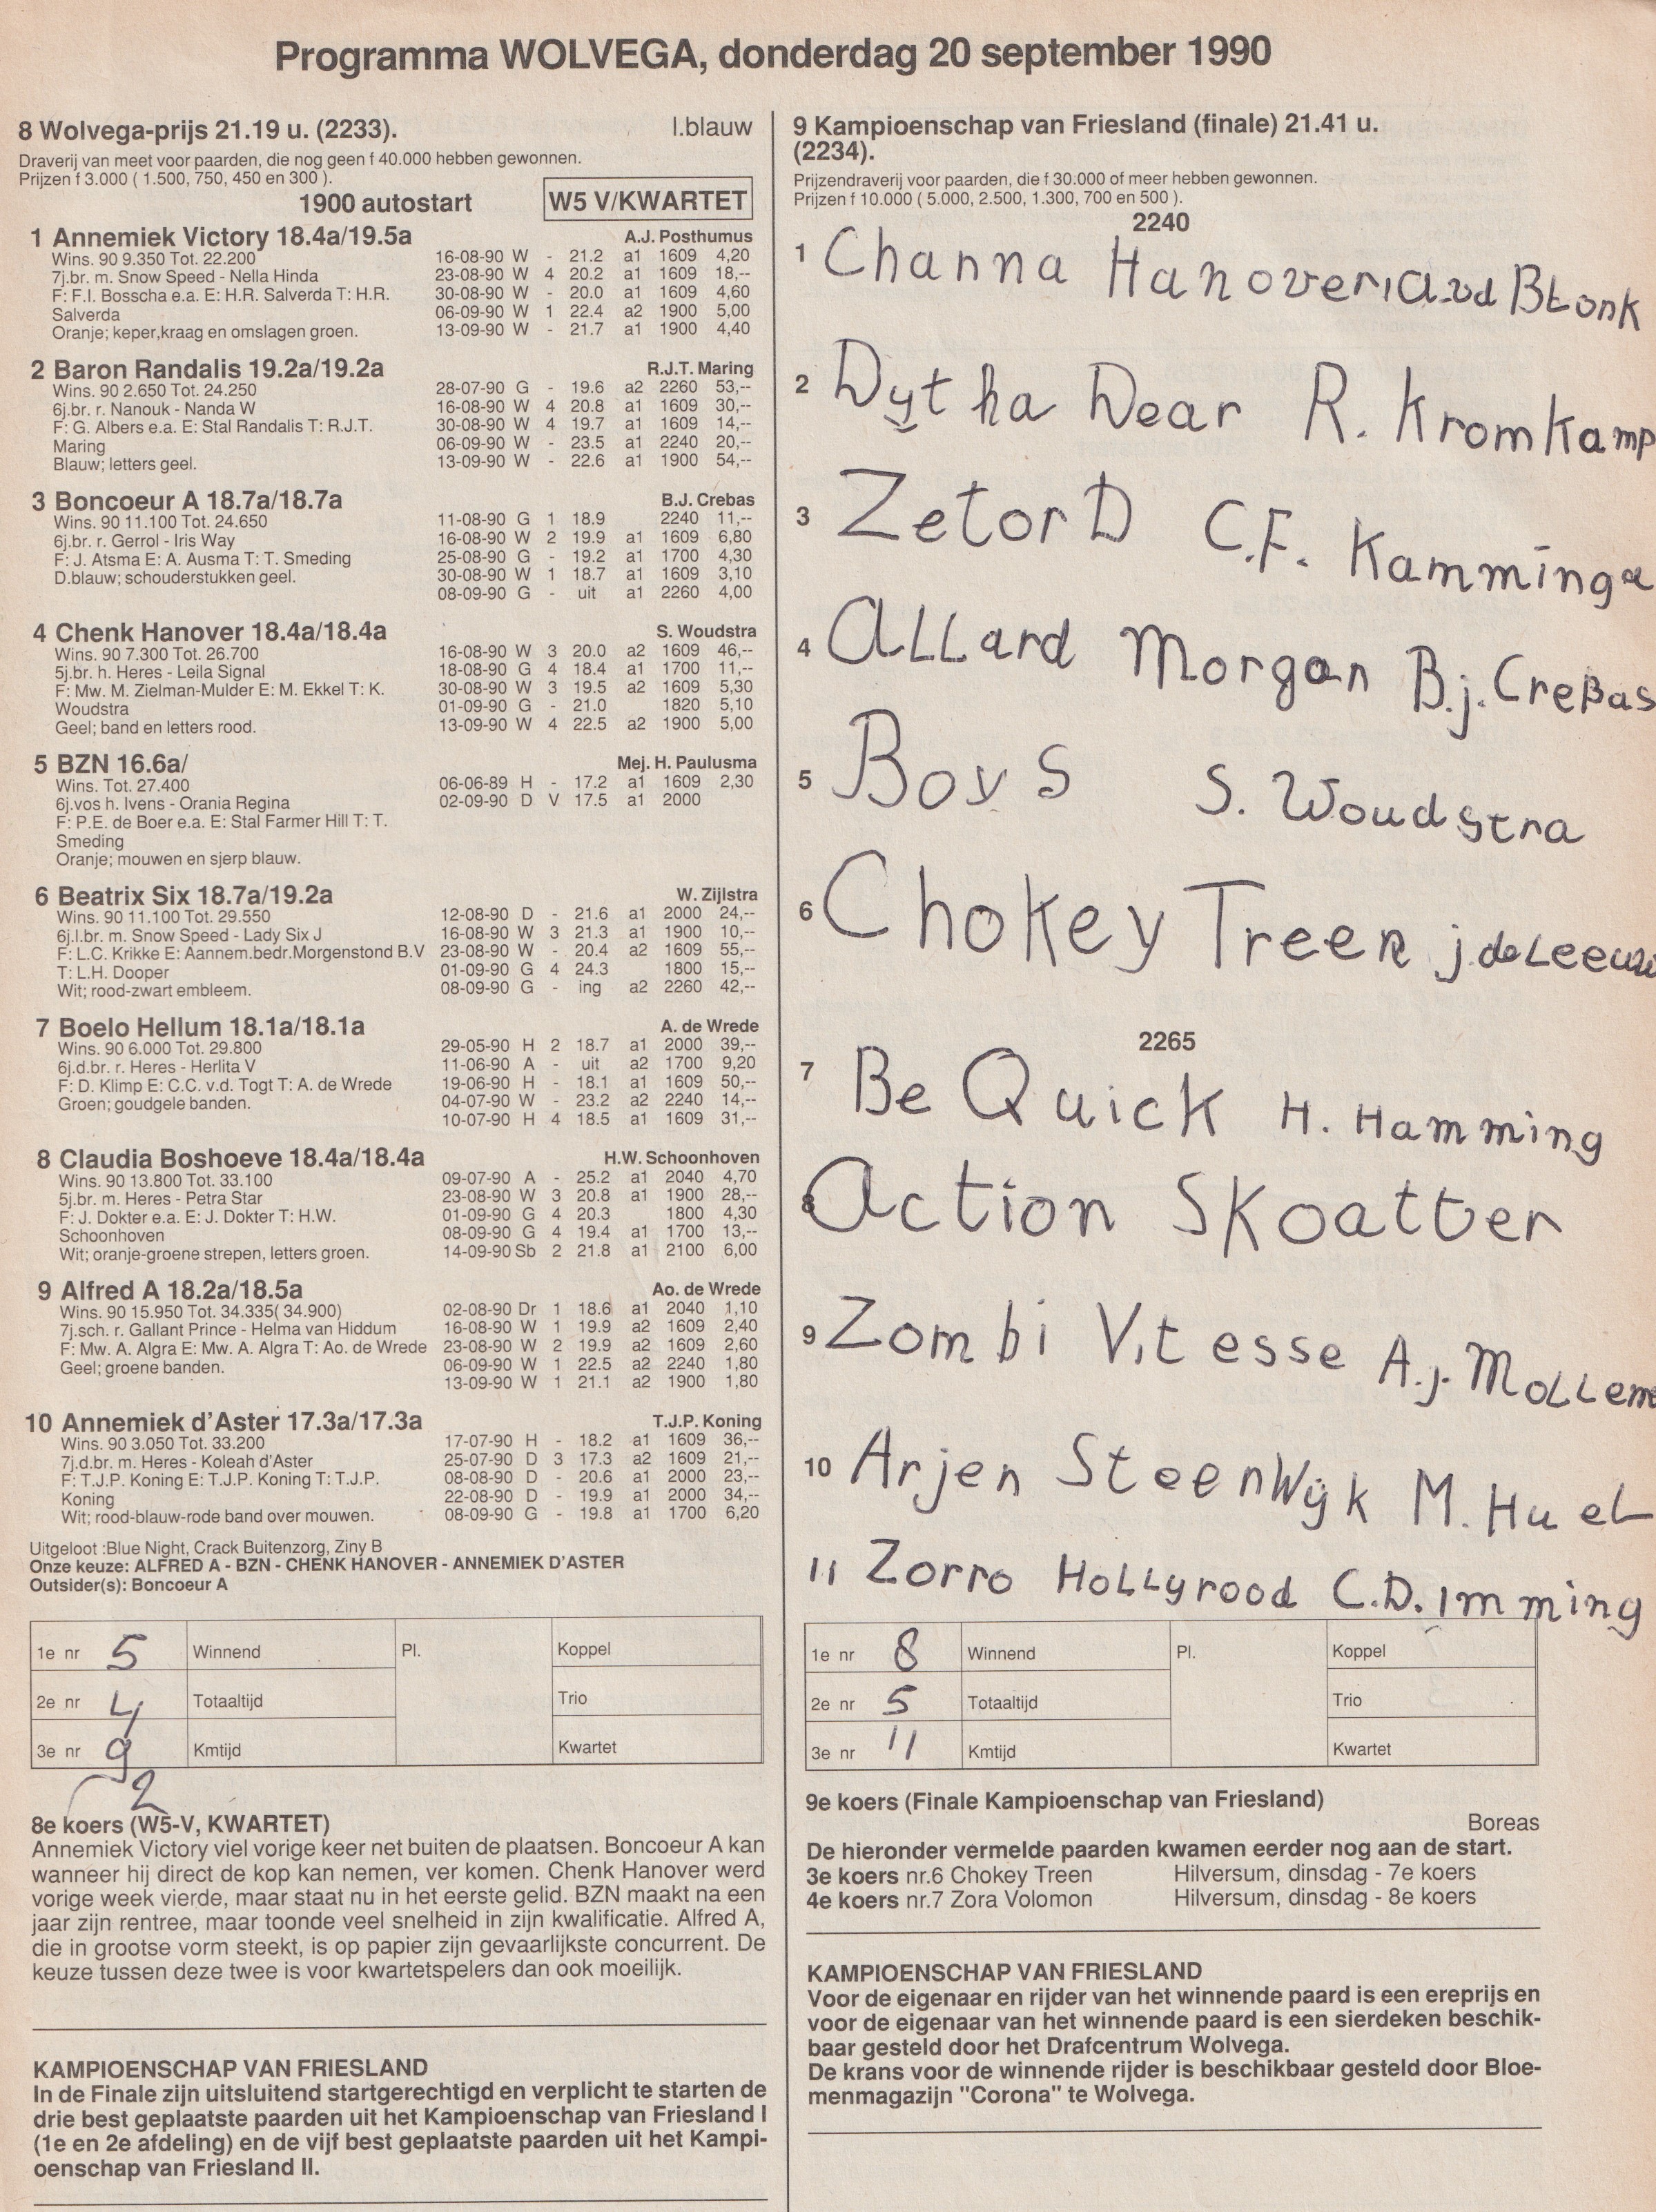 Programma WOLVEGA, donderdag 20 september 1990
8 Wolvega-prijs 21.19 u. (2233). l.blauw
Draverij van meet voor paarden, die nog geen f 40.000 hebben gewonnen.
Prijzen f 3.000 ( 1.500, 750, 450 en 300 ).
1900 autostart W5 V/KWARTET
1 Annemiek Victory 18.4a/19.5a A.J. Posthumus
Wins. 90 9.350 Tot. 22.200 16-08-90 W - 21.2 a1 1609 4,20
7j.br. m. Snow Speed - Nella Hinda 23-08-90 W 4 20.2 a1 1609 18,--
F: F.I. Bosscha e.a. E: H.R. Salverda T: H.R. 30-08-90 W - 20.0 a1 1609 4,60
Salverda 06-09-90 W 1 22.4 a2 1900 5,00
Oranje; keper,kraag en omslagen groen. 13-09-90 W - 21.7 a1 1900 4,40
2 Baron Randalis 19.2a/19.2a R.J.T. Maring
Wins. 90 2.650 Tot. 24.250 28-07-90 G - 19.6 a2 2260 53,--
6j.br. r. Nanouk - Nanda W 16-08-90 W 4 20.8 a1 1609 30,--
F: G. Albers e.a. E: Stal Randalis T: R.J.T. 30-08-90 W 4 19.7 a1 1609 14,--
Maring 06-09-90 W - 23.5 a1 2240 20,--
Blauw; letters geel. 13-09-90 W - 22.6 a1 1900 54,--
3 Boncoeur A 18.7a/18.7a B.J. Crebas
Wins. 90 11.100 Tot. 24.650 11-08-90 G 1 18.9 2240 11,--
6j.br. r. Gerrol - Iris Way 16-08-90 W 2 19.9 a1 1609 6,80
F: J. Atsma E: A. Ausma T: T. Smeding 25-08-90 G - 19.2 a1 1700 4,30
D.blauw; schouderstukken geel. 30-08-90 W 1 18.7 a1 1609 3,10
08-09-90 G - uit a1 2260 4,00
4 Chenk Hanover 18.4a/18.4a S. Woudstra
Wins. 90 7.300 Tot. 26.700 16-08-90 W 3 20.0 a2 1609 46,--
5j.br. h. Heres - Leila Signal 18-08-90 G 4 18.4 a1 1700 11,--
F: Mw. M. Zielman-Mulder E: M. Ekkel T: K. 30-08-90 W 3 19.5 a2 1609 5,30
Woudstra 01-09-90 G - 21.0 1820 5,10
Geel; band en letters rood. 13-09-90 W 4 22.5 a2 1900 5,00
5 BZN 16.6a/ Mej. H. Paulusma
Wins. Tot. 27.400 06-06-89 H - 17.2 a1 1609 2,30
6j.vos h. Ivens - Orania Regina 02-09-90 D V 17.5 a1 2000
F: P.E. de Boer e.a. E: Stal Farmer Hill T: T.
Smeding
Oranje; mouwen en sjerp blauw.
6 Beatrix Six 18.7a/19.2a W. Zijlstra
Wins. 90 11.100 Tot. 29.550 12-08-90 D - 21.6 a1 2000 24,--
6j.l.br. m. Snow Speed - Lady Six J 16-08-90 W 3 21.3 a1 1900 10,--
F: L.C. Krikke E: Aannem.bedr.Morgenstond B.V 23-08-90 W - 20.4 a2 1609 55,--
T: L.H. Dooper 01-09-90 G 4 24.3 1800 15,--
Wit; rood-zwart embleem. 08-09-90 G - ing a2 2260 42,--
7 Boelo Hellum 18.1a/18.1a A. de Wrede
Wins. 90 6.000 Tot. 29.800 29-05-90 H 2 18.7 a1 2000 39,--
6j.d.br. r. Heres - Herlita V 11-06-90 A - uit a2 1700 9,20
F: D. Klimp E: C.C. v.d. Togt T: A. de Wrede 19-06-90 H - 18.1 a1 1609 50,--
Groen; goudgele banden. 04-07-90 W - 23.2 a2 2240 14,--
10-07-90 H 4 18.5 a1 1609 31,--
8 Claudia Boshoeve 18.4a/18.4a H.W. Schoonhoven
Wins. 90 13.800 Tot. 33.100 09-07-90 A - 25.2 a1 2040 4,70
5j.br. m. Heres - Petra Star 23-08-90 W 3 20.8 a1 1900 28,--
F: J. Dokter e.a. E: J. Dokter T: H.W. 01-09-90 G 4 20.3 1800 4,30
Schoonhoven 08-09-90 G 4 19.4 a1 1700 13,--
Wit; oranje-groene strepen, letters groen. 14-09-90 Sb 2 21.8 a1 2100 6,00
9 Alfred A 18.2a/18.5a Ao. de Wrede
Wins. 90 15.950 Tot. 34.335( 34.900) 02-08-90 Dr 1 18.6 a1 2040 1,10
7j.sch. r. Gallant Prince - Helma van Hiddum 16-08-90 W 1 19.9 a2 1609 2,40
F: Mw. A. Algra E: Mw. A. Algra T: Ao. de Wrede 23-08-90 W 2 19.9 a2 1609 2,60
Geel; groene banden. 06-09-90 W 1 22.5 a2 2240 1,80
13-09-90 W 1 21.1 a2 1900 1,80
10 Annemiek d'Aster 17.3a/17.3a T.J.P. Koning
Wins. 90 3.050 Tot. 33.200 17-07-90 H - 18.2 a1 1609 36,--
7j.d.br. m. Heres - Koleah d'Aster 25-07-90 D 3 17.3 a2 1609 21,--
F: T.J.P. Koning E: T.J.P. Koning T: T.J.P. 08-08-90 D - 20.6 a1 2000 23,--
Koning 22-08-90 D - 19.9 a1 2000 34,--
Wit; rood-blauw-rode band over mouwen. 08-09-90 G - 19.8 a1 1700 6,20
Uitgeloot :Blue Night, Crack Buitenzorg, Ziny B
Onze keuze: ALFRED A - BZN - CHENK HANOVER - ANNEMIEK D'ASTER
Outsider(s): Boncoeur A
1e nr 5 Winnend Pl. Koppel
2e nr 4 Totaaltijd Trio
3e nr 9 Kmtijd Kwartet
2
8e koers (W5-V, KWARTET)
Annemiek Victory viel vorige keer net buiten de plaatsen. Boncoeur A kan
wanneer hij direct de kop kan nemen, ver komen. Chenk Hanover werd
vorige week vierde, maar staat nu in het eerste gelid. BZN maakt na een
jaar zijn rentree, maar toonde veel snelheid in zijn kwalificatie. Alfred A,
die in grootse vorm steekt, is op papier zijn gevaarlijkste concurrent. De
keuze tussen deze twee is voor kwartetspelers dan ook moeilijk.
KAMPIOENSCHAP VAN FRIESLAND
In de Finale zijn uitsluitend startgerechtigd en verplicht te starten de
drie best geplaatste paarden uit het Kampioenschap van Friesland I
(1e en 2e afdeling) en de vijf best geplaatste paarden uit het Kampi-
oenschap van Friesland II.
9 Kampioenschap van Friesland (finale) 21.41 u.
(2234).
Prijzendraverij voor paarden, die f 30.000 of meer hebben gewonnen.
Prijzen f 10.000 ( 5.000, 2.500, 1.300, 700 en 500 ).
2240
1 Channa Hanover vd Blonk
2 Dytha Dear R. Kromkamp
3 Zetor D C.F. Kamminga
4 Allard Morgan B.j. Crebas
5 Boy S S. Woudstra
6 Chokey Treen j. de Leeuw
2265
7 Be Quick H. Hamming
8 Action Skoatter
9 Zombi Vitesse A.j. Mollem
10 Arjen Steenwijk M. Huel
11 Zorro Hollyrood C.D. Imming
1e nr 8 Winnend Pl. Koppel
2e nr 5 Totaaltijd Trio
3e nr 11 Kmtijd Kwartet
9e koers (Finale Kampioenschap van Friesland)
Boreas
De hieronder vermelde paarden kwamen eerder nog aan de start.
3e koers nr.6 Chokey Treen Hilversum, dinsdag - 7e koers
4e koers nr.7 Zora Volomon Hilversum, dinsdag - 8e koers
KAMPIOENSCHAP VAN FRIESLAND
Voor de eigenaar en rijder van het winnende paard is een ereprijs en
voor de eigenaar van het winnende paard is een sierdeken beschik-
baar gesteld door het Drafcentrum Wolvega.
De krans voor de winnende rijder is beschikbaar gesteld door Bloe-
menmagazijn "Corona" te Wolvega.